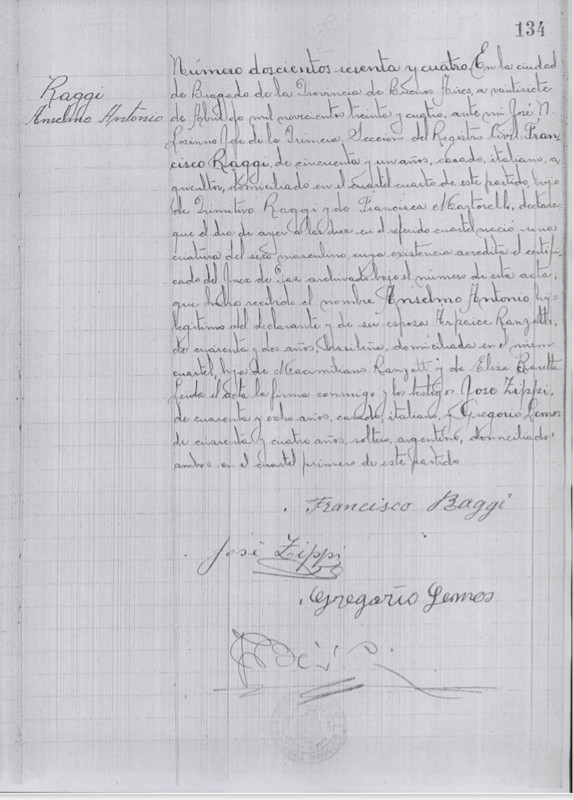 134
Raggi
Anselmo Antonio
Número doscientos sesenta y cuatro. En la ciudad
de Bragado de la Provincia de Buenos Aires, a veintisiete
de Abril de mil novecientos treinta y cuatro, ante mi José N.
Jefe de la Primera Sección del Registro Civil: Fran-
cisco Raggi, de cincuenta y un años, casado, italiano, a-
gricultor, domiciliado en el cuartel cuarto de este partido, hijo
de Primitivo Raggi y de Francisca Martorelli, declara:
que el dia de ayer a las diez en el referido cuartel nació una
criatura del sexo masculino, cuya existencia acredita el certifi-
cado del Juez de Paz archivado bajo el número de esta acta;
que ha recibido el nombre Anselmo Antonio, hijo
legítimo del declarante y de su esposa Ranzetti,
de cuarenta y dos años, brasileña, domiciliada en el mismo
cuartel, hija de Maximiliano Ranzetti y de Elisa
Leida el acta la firma conmigo y los testigos José Zippi,
de cuarenta y ocho años, casado, italiano, y Gregorio Lemos
de cuarenta y cuatro años, soltero, argentino, domiciliados
ambos en el cuartel primero de este partido
Francisco Raggi
José Zippi
Gregorio Lemos